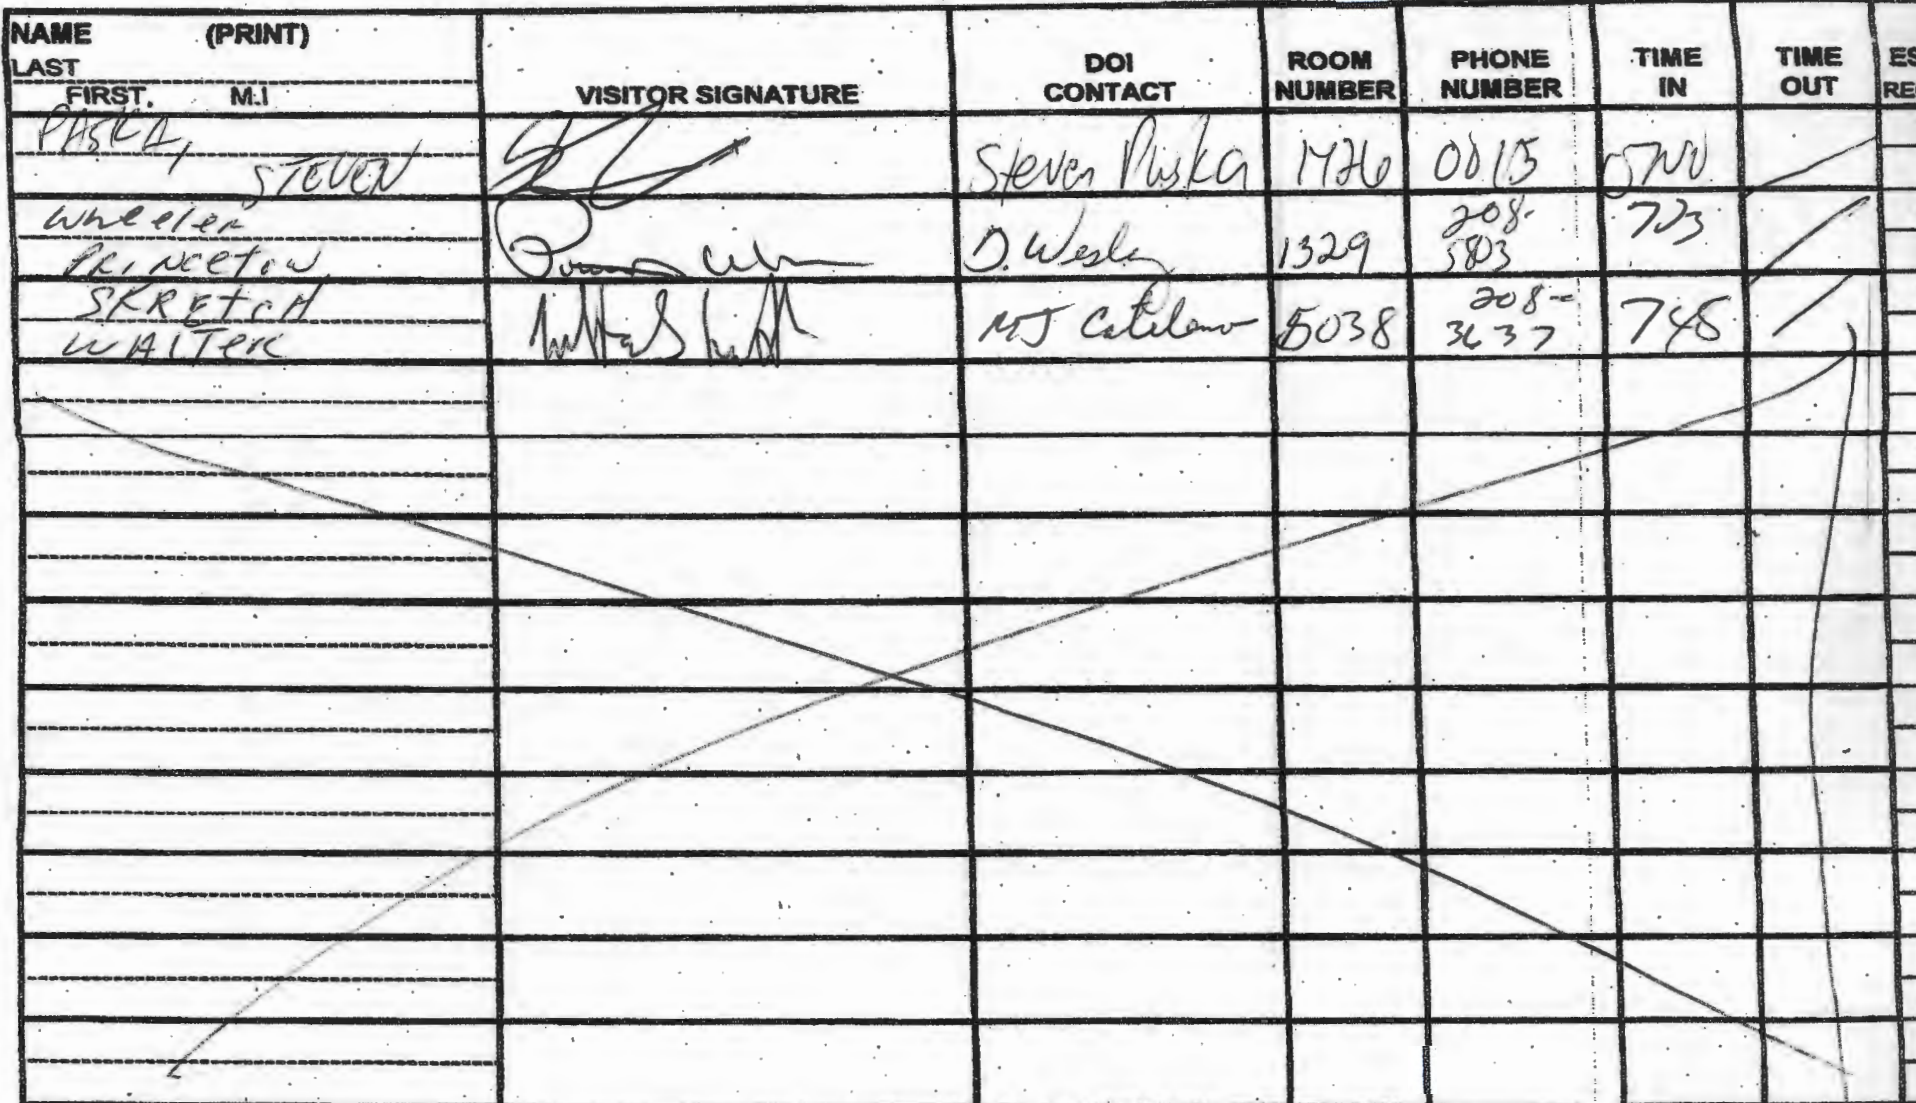 NAME (PRINT)
LAST
FIRST, M.I
VISITOR SIGNATURE
DOI CONTACT
ROOM NUMBER
PHONE NUMBER
TIME IN
TIME OUT
ES
RE
PASKA,
STEVEN
Steven 1426 0015
Wheeler
PRINCETON
D. Wesley 1329 208-5803 723
SKRETCH
WALTER
MJ Catelano 5038 208-3637 748